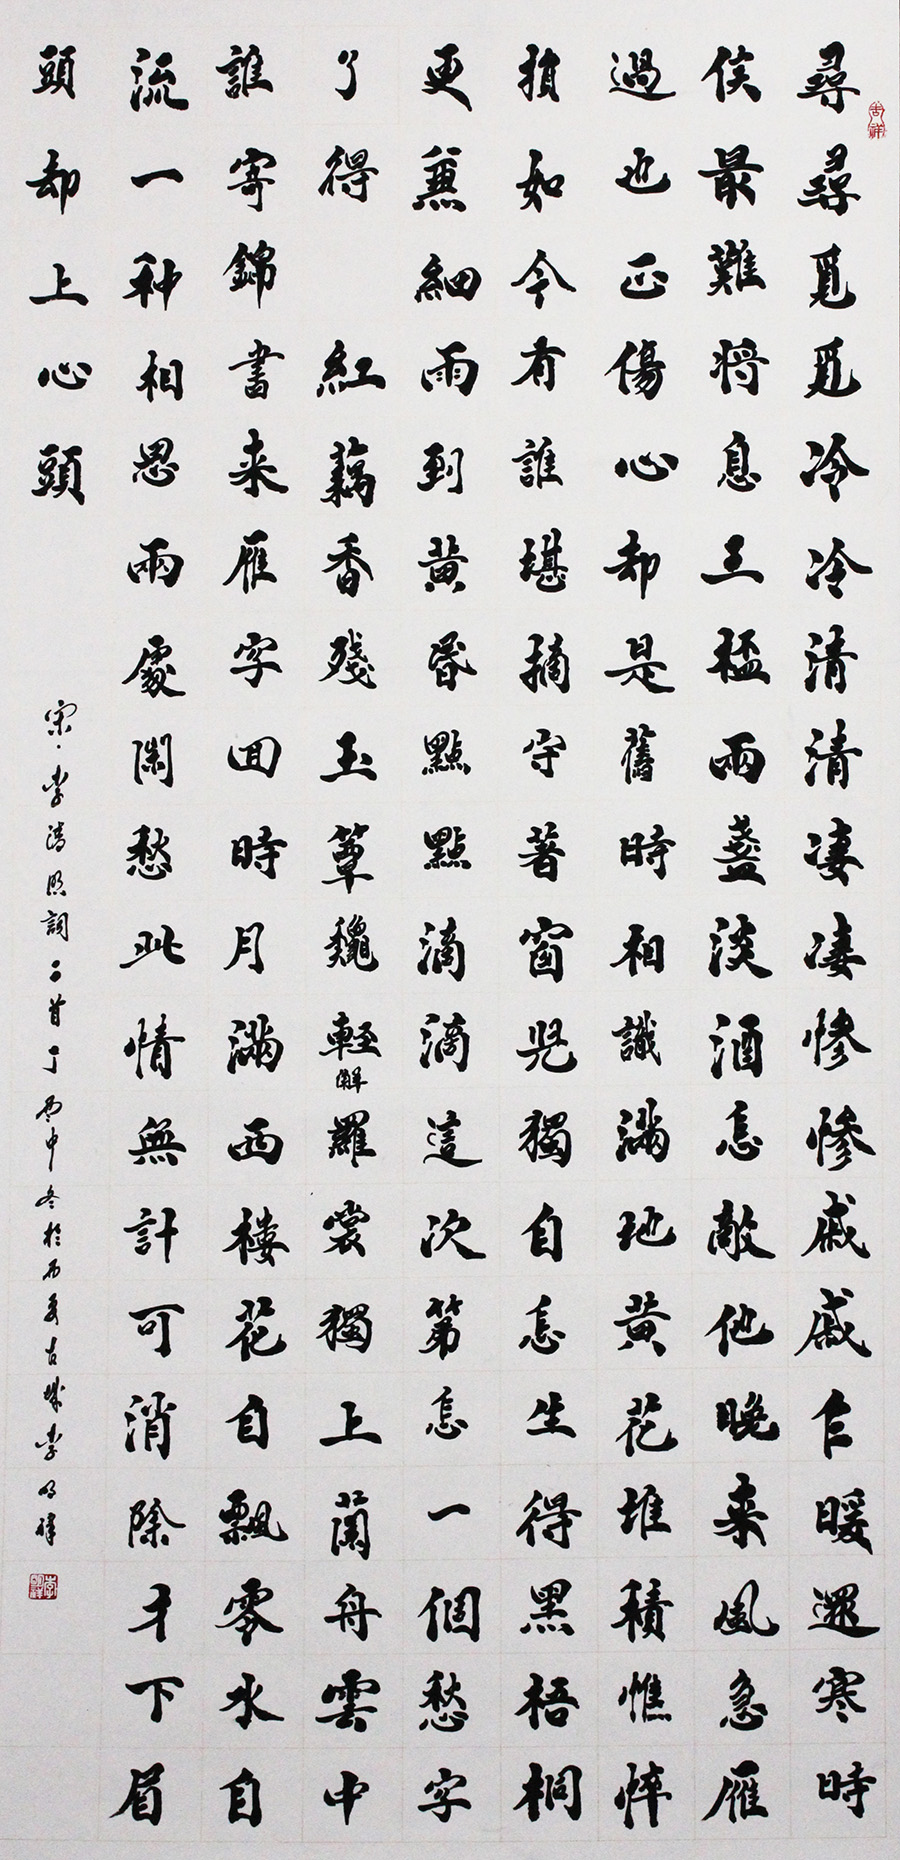 尋尋覓覓冷冷清清凄凄慘慘戚戚乍暖還寒時
候最難將息三桮兩盞淡酒怎敵他晚来風急雁
過也正傷心却是舊時相識滿地黄花堆積憔悴
損如今有誰堪摘守著窗児獨自怎生得黑梧桐
更兼細雨到黄昏點點滴滴這次第怎一個愁字
了得 紅藕香殘玉簟龝輕解羅裳獨上蘭舟雲中
誰寄錦書来雁字回時月滿西楼花自飄零水自
流一种相思兩處閑愁此情無計可消除才下眉
頭却上心頭
宋·李清照詞二首丁酉中冬於西安古城李明祥
吉祥